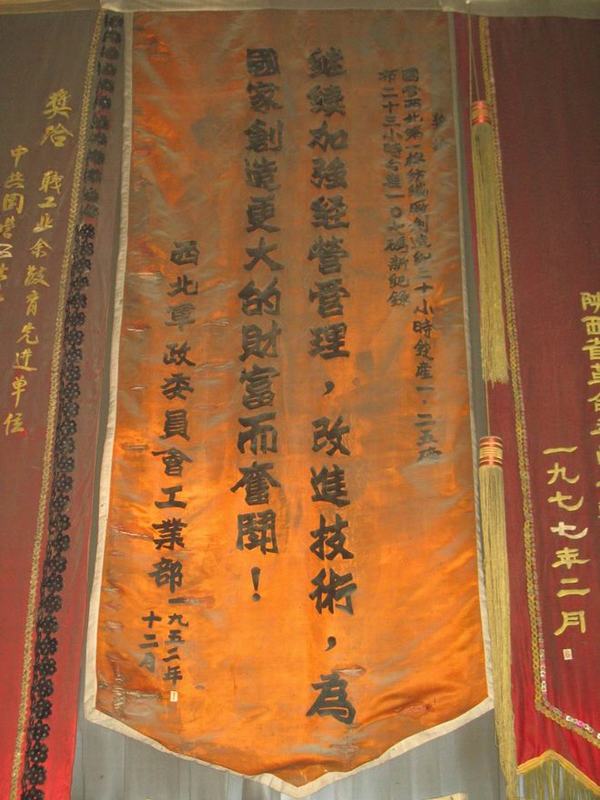 陕西省革命委
一九七七年二月
國营西北第一棉纺織廠創造紗二十小時錠產一·二五磅
布二十三小時台產一〇七碼新紀錄
继续加強经營管理，改進技術，為
國家創造更大的財富而奮鬪！
西北軍政委員會工業部
一九五二年
十二月
奖给 职工业余教育先进单位
中共国营